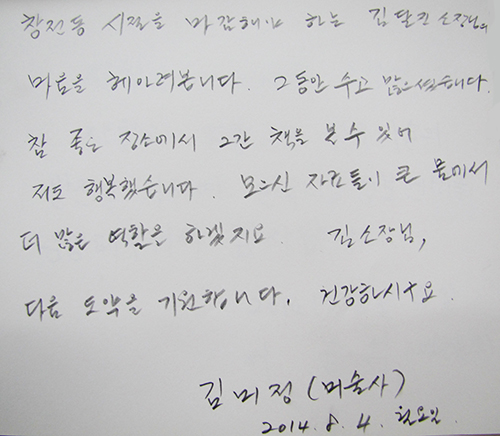 창전동 시절을 마감해야 하는 김달진 소장님의
마음을 헤아려봅니다. 그동안 수고 많으셨습니다.
참 좋은 장소에서 그간 책을 볼 수 있어
저도 행복했습니다. 모으신 자료들이 큰 몸에서
더 많은 역할을 하겠지요. 김소장님,
다음 도약을 기원합니다. 건강하시구요.
김미정 (미술사)
2014. 8. 4. 월요일